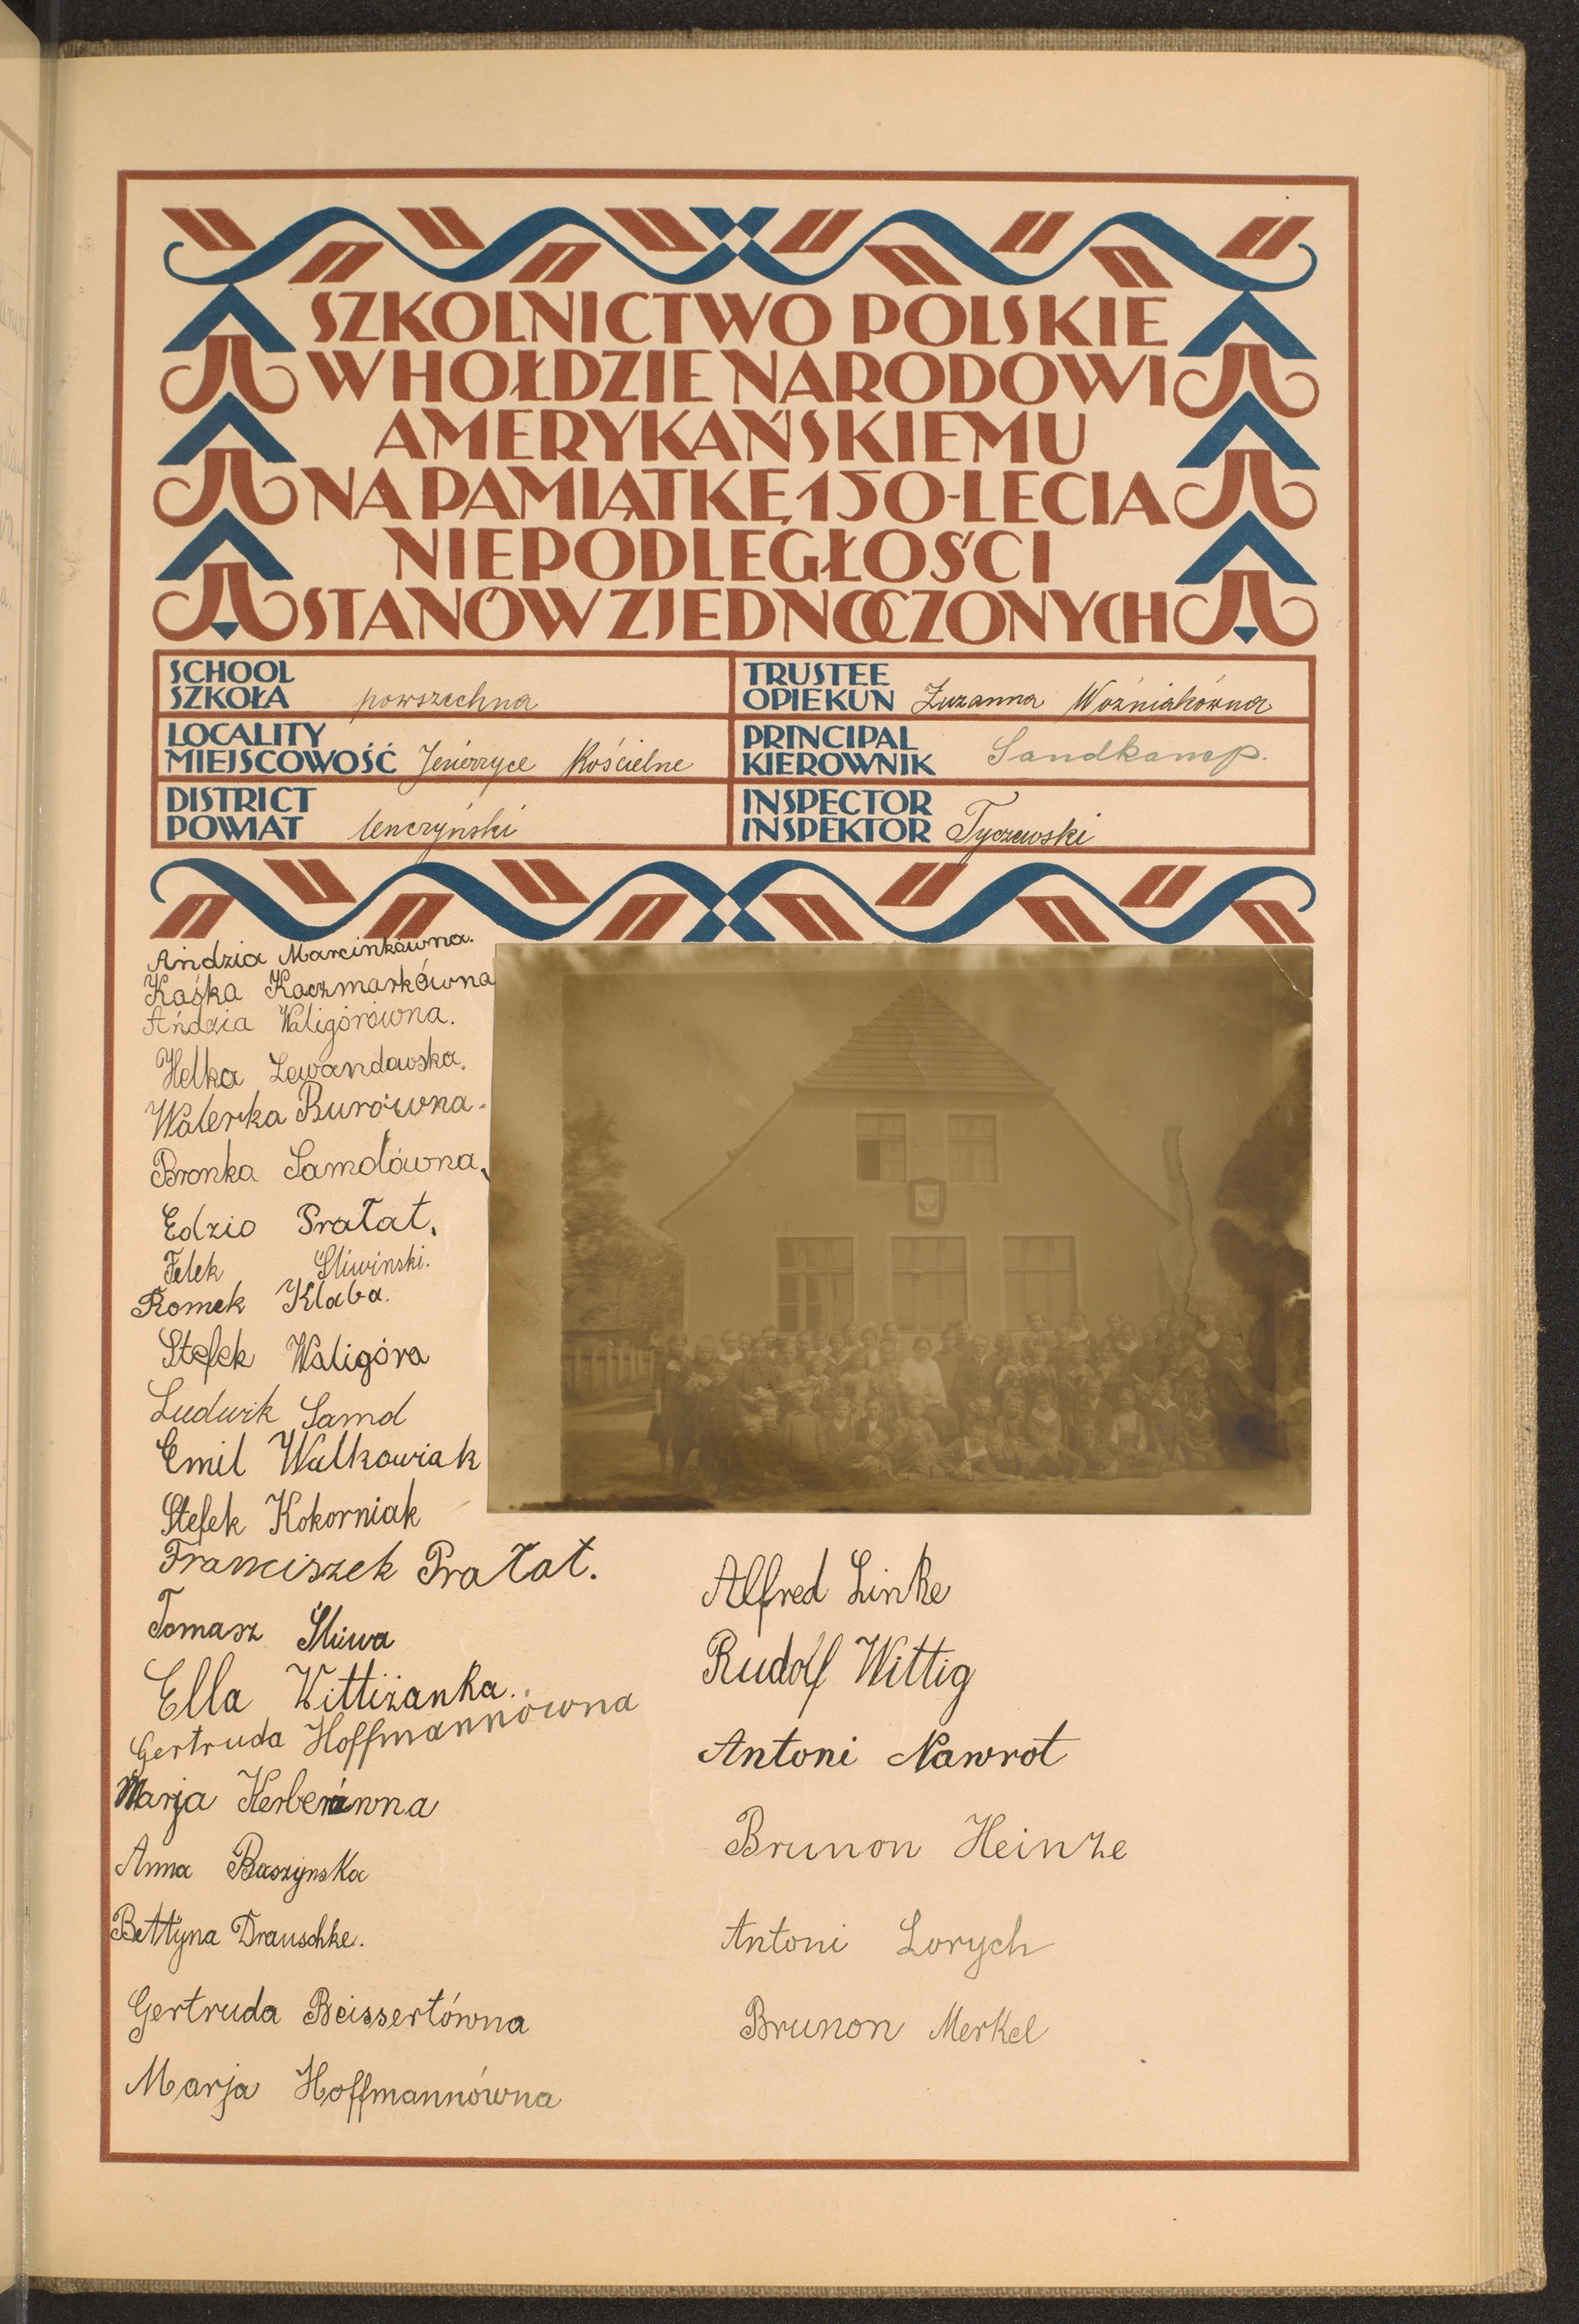 SZKOLNICTWO POLSKIE
W HOŁDZIE NARODOWI
AMERYKAŃSKIEMU
NA PAMIĄTKĘ 150-LECIA
NIEPODLEGŁOŚCI
STANÓW ZJEDNOCZONYCH
SCHOOL
SZKOŁA powszechna
TRUSTEE
OPIEKUN Zuzanna Woźniakówna
LOCALITY
MIEJSCOWOŚĆ Jezierzyce Kościelne
PRINCIPAL
KIEROWNIK Sandkamp.
DISTRICT
POWIAT
INSPECTOR
INSPEKTOR Tyczewski
Ańdzia Marcinkówna.
Kaśka Kaczmarkówna
Ańdzia Waligórówna.
Helka Lewandowska.
Walerka Burówna.
Bronka Samolówna.
Edzio Prałat.
Felek Śliwiński.
Romek Klaba.
Stefek Waligóra
Ludwik Samol
Emil Walkowiak
Stefek Kokorniak
Franciszek Prałat.
Tomasz Śliwa
Ella Wittiżanka.
Gertruda Hoffmannówna
Marja Kerberówna
Anna Baszyńska
Bettyna Drauschke.
Gertruda Beissertówna
Marja Hoffmannówna
Alfred Linke
Rudolf Wittig
Antoni Nawrot
Brunon Heinze
Antoni Lorych
Brunon Merkel